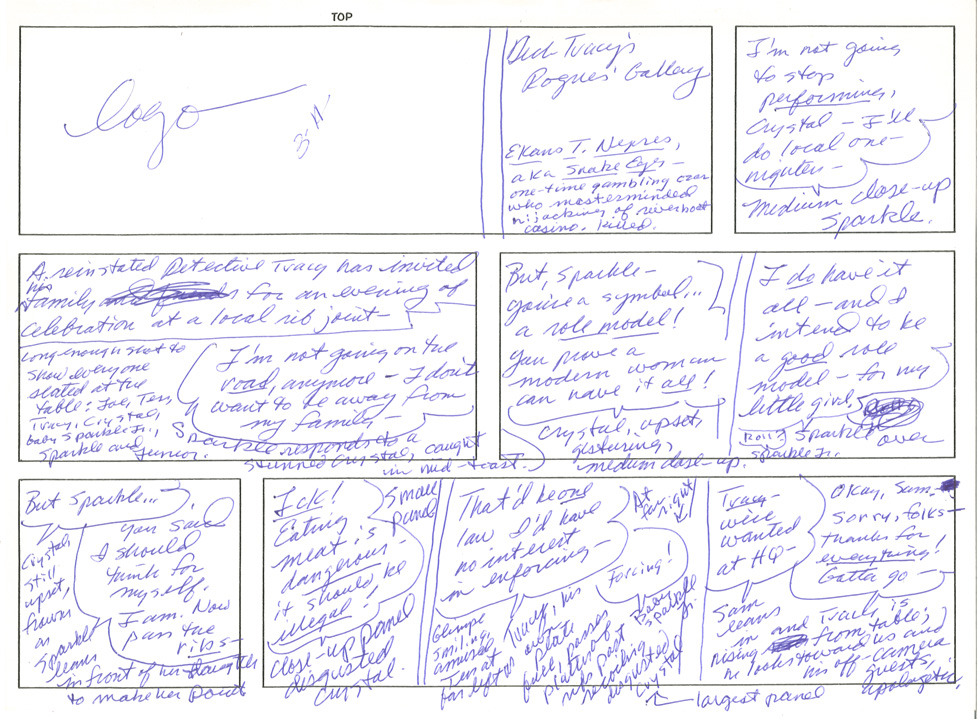 TOP
logo
3-11
Dick Tracy's
Rogues' Gallery
Ekans T. Nepres,
aka Snake Eyes –
one-time gambling czar
who masterminded
hijacking of riverboat
casino. Killed.
I'm not going
to stop
performing,
Crystal – I'll
do local one-
nighters –
Medium close-up
Sparkle.
A reinstated Detective Tracy has invited
his
family for an evening of
celebration at a local rib joint –
Long enough shot to
show everyone
seated at the
table: Joe, Tess,
Tracy, Crystal,
baby Sparkle Jr.,
Sparkle and
Junior.
I'm not going on the
road, anymore – I don't
want to be away from
my family –
Sparkle responds to a
stunned Crystal, caught
in mid-toast.
But, Sparkle –
you're a symbol...
a role model!
You prove a
modern woman
can have it all!
Crystal, upset,
gesturing,
medium close-up.
I do have it
all – and I
intend to be
a good role
model – for my
little girl,
Sparkle over
Sparkle Jr.
But Sparkle...
You said
I should
think for
myself.
I am. Now
pass the
ribs –
Crystal,
still
upset,
frowns
as
Sparkle
leans
in front of her daughter
to make her point
Ick!
Eating
meat is
dangerous –
it should be
illegal!
Small
panel
close-up panel
disgusted
Crystal.
That'd be one
law I'd have
no interest
in enforcing –
At
far right
Forcing!
Glimpse
smiling,
amused
Tess at
far left as
Tracy, his
own
plate
full, passes
platter of
ribs past
recoiling
disgusted
Crystal
Baby
Sparkle
Jr.
largest panel
Tracy –
we're
wanted
at HQ –
Okay, Sam.
Sorry, folks –
thanks for
everything!
Gotta go –
Sam
leans
in and Tracy is
rising from table;
he looks toward us and
his off-camera
guests,
apologetic.